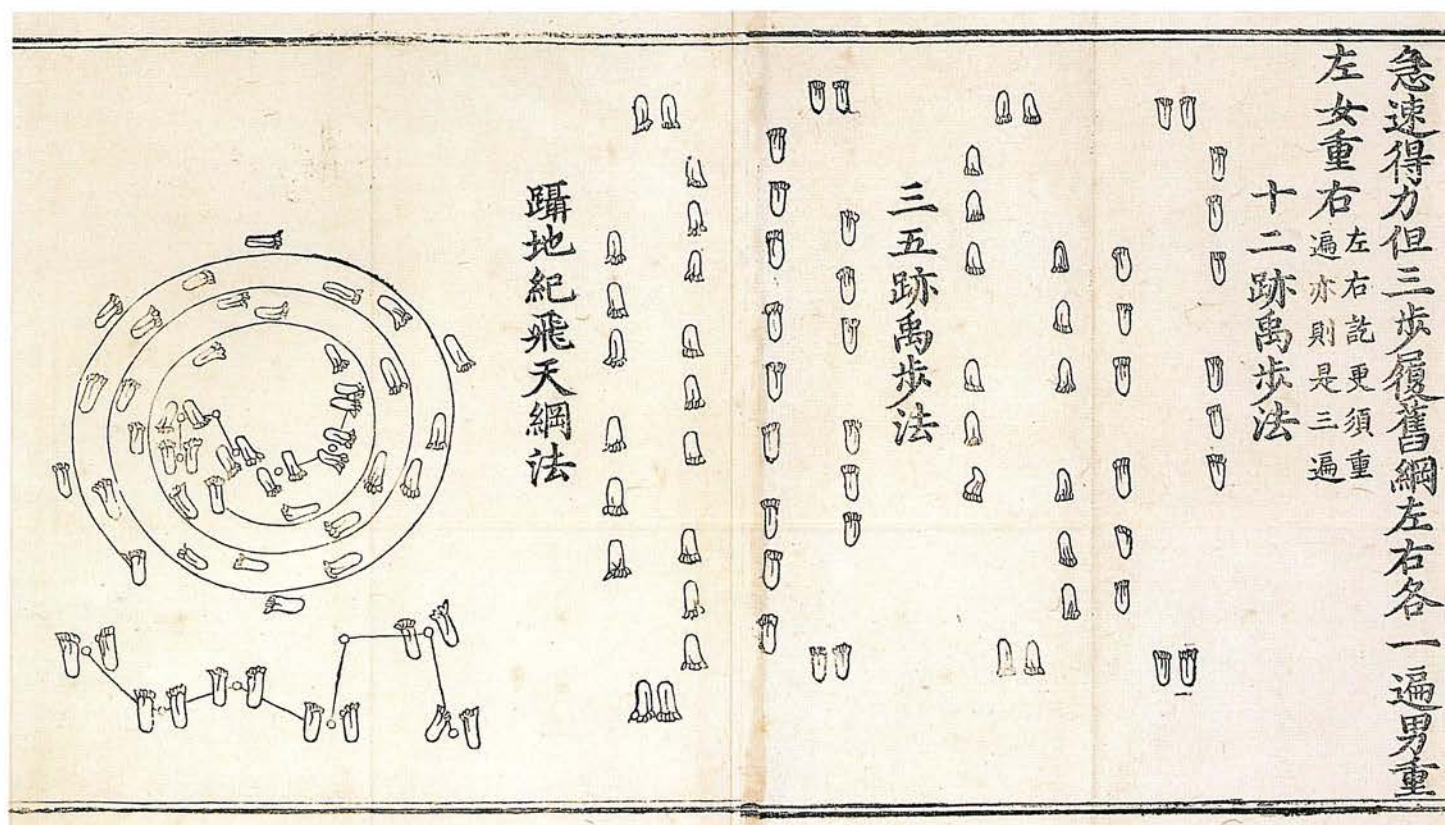 急速得力但三步履舊綱左右各一遍男重
左女重右左右訖更須重
遍亦則是三遍
十二跡禹步法
三五跡禹步法
躡地紀飛天綱法